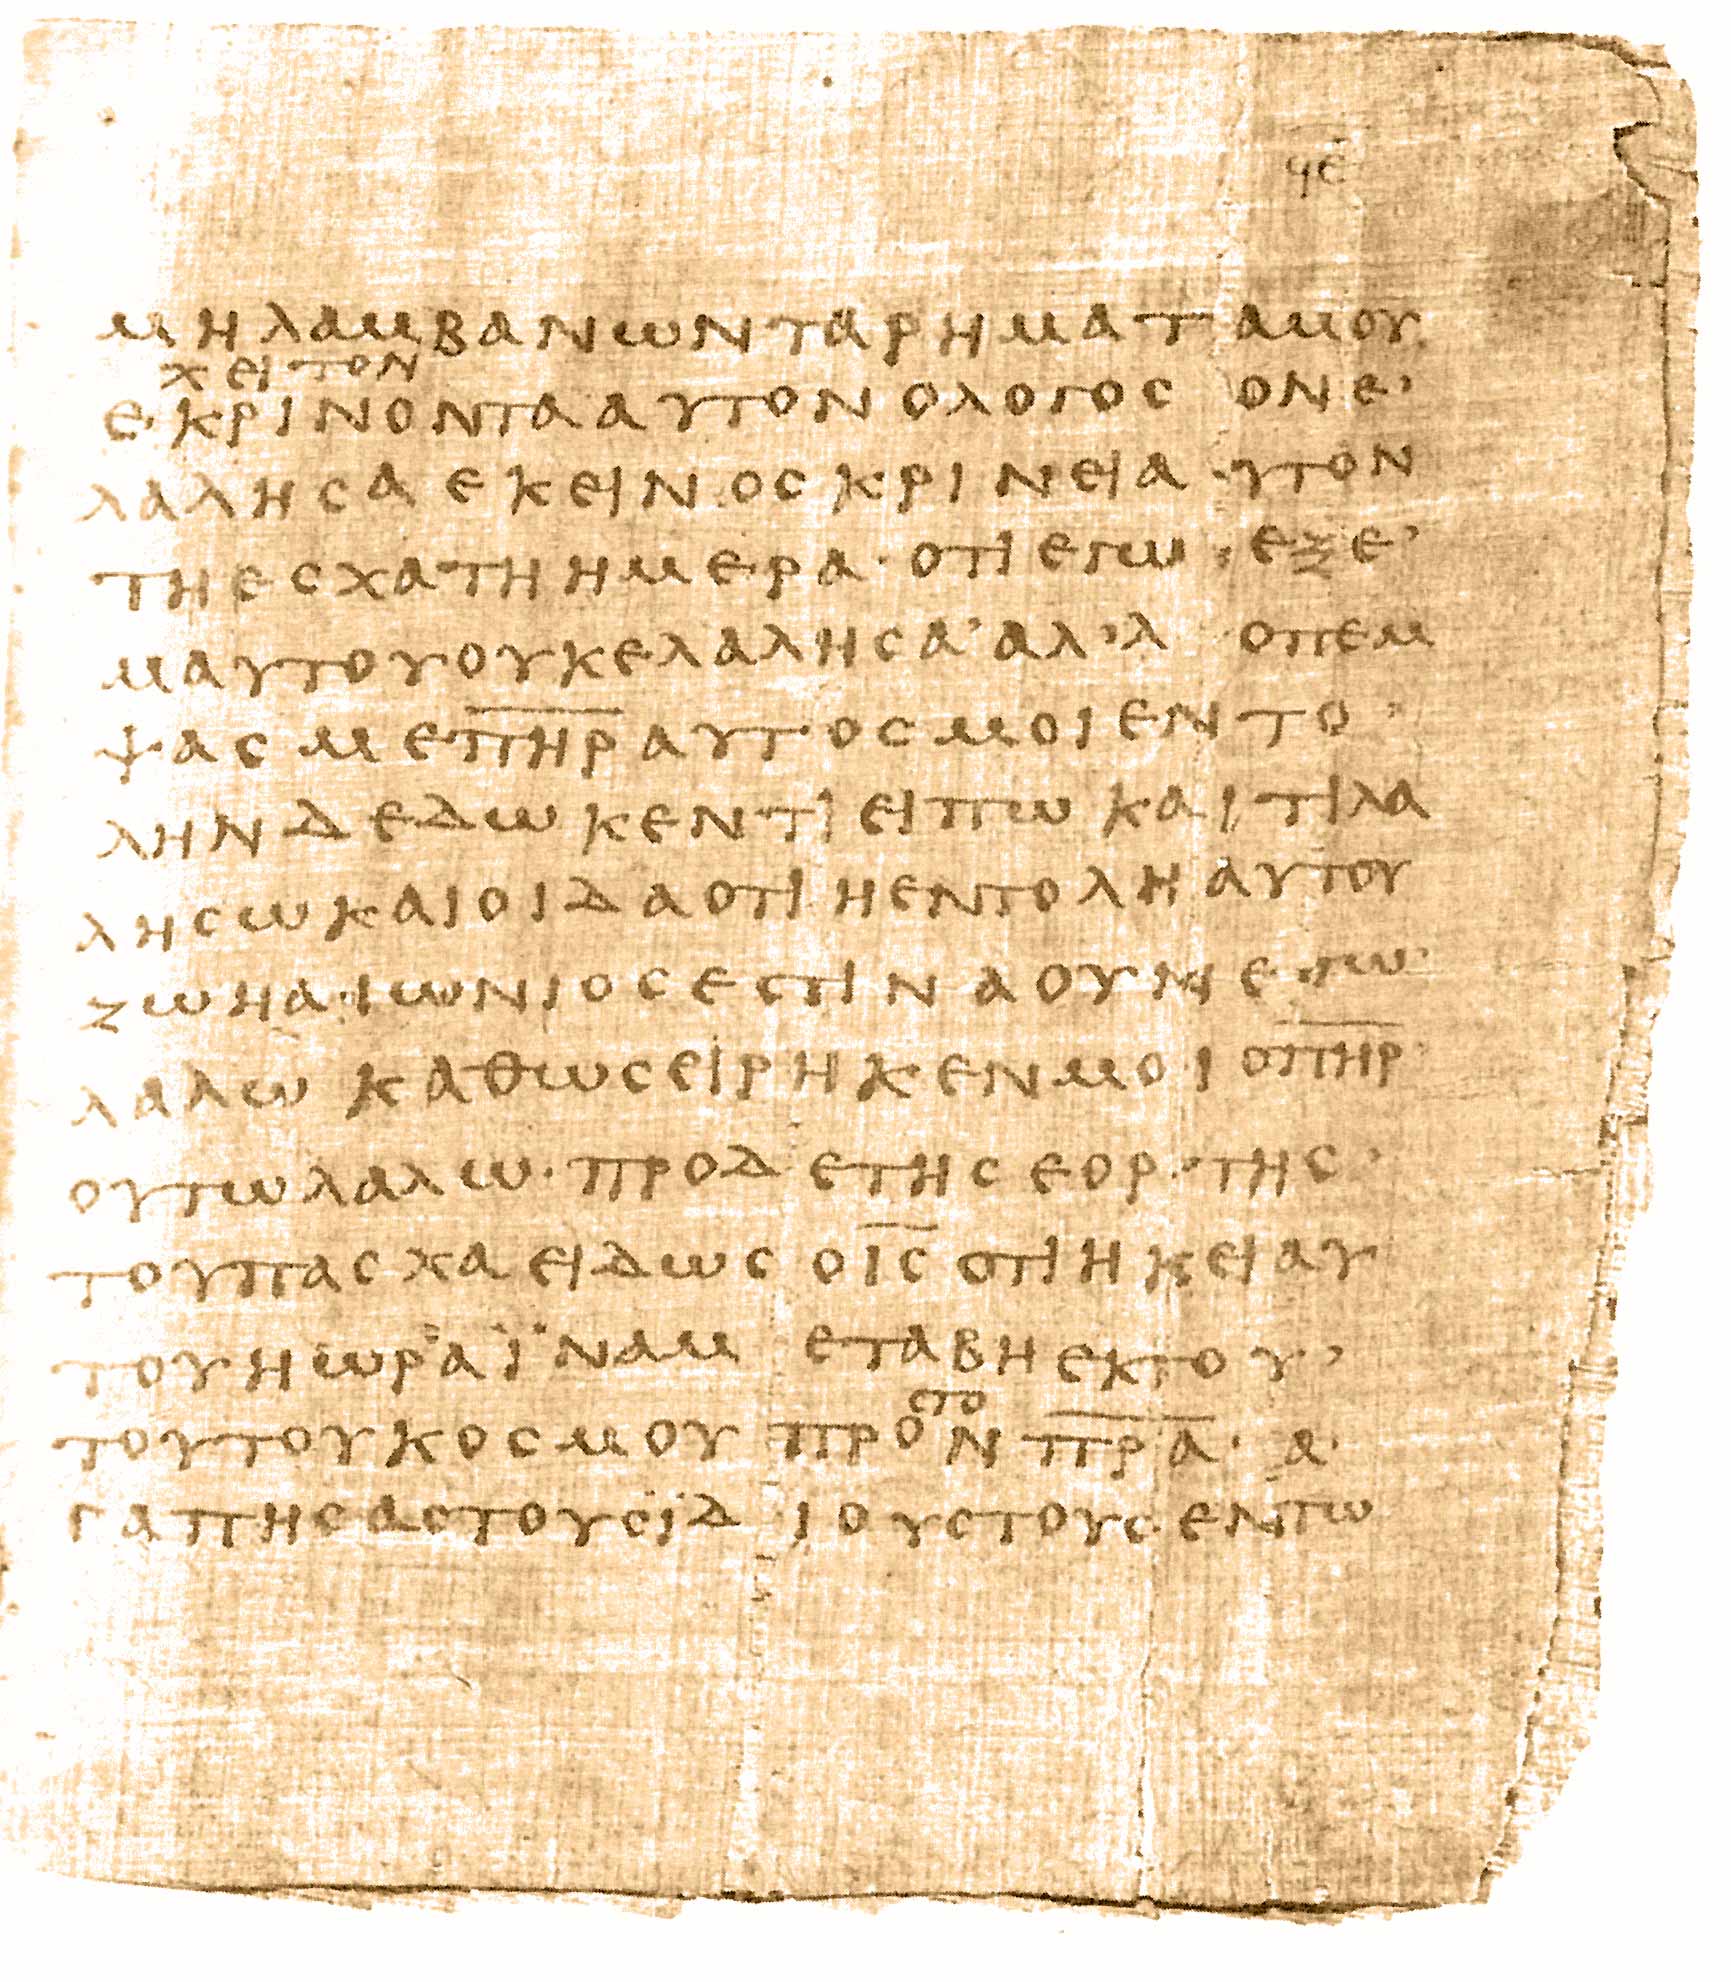 ϥε
μηλαμβανωνταρηματαμου
χειτον
ε·κρινοντααυτονολογος ονε᾽
λαλησα εκεινοςκρινεια·υτον
τηεσχατηημερα· οτιεγω·εξε᾽
μαυτουουκελαλησα᾽αλ᾽λ οπεμ
ψαςμεπ̅η̅ρ̅αυτοςμοιεντο᾽
ληνδεδωκεντιειπωκαιτιλα
λησωκαιοιδαοτιηεντοληαυτου
ζωηα·ιωνιοςεστιν αουνε·γω·
λαλω καθωςειρηκενμοιοπ̅η̅ρ̅
ουτωλαλω· προδετηςεορ·της᾽
τουπασχαειδως οι̅ς̅ οτιηκειαυ
τουηωραϊναμ εταβηεκτου᾽
στο
τουτουκοσμου προν π̅ρ̅α̅· α·
γαπησαςτουςϊδιουςτους·εντω